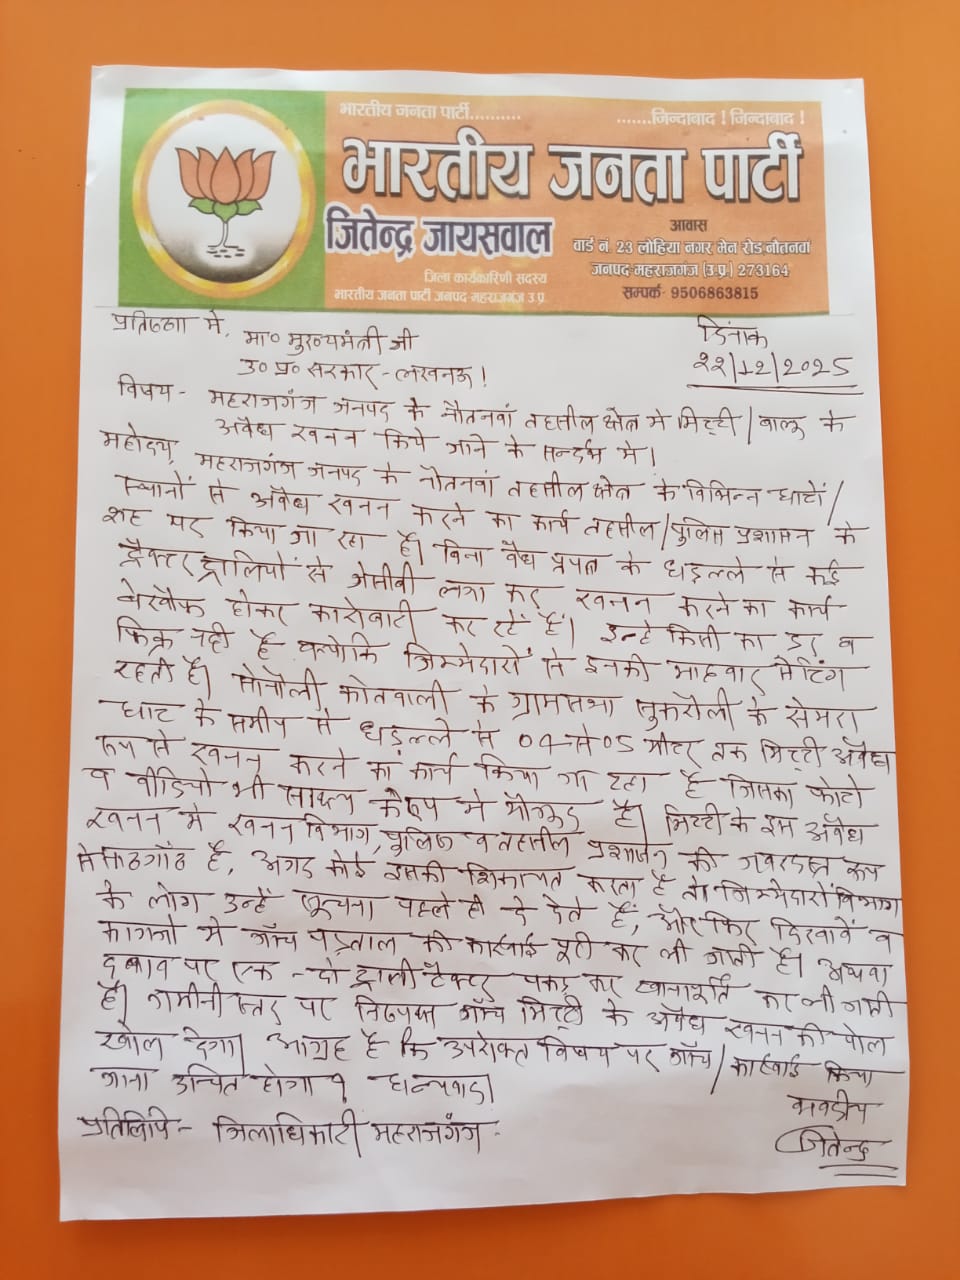 भारतीय जनता पार्टी..........
.......जिन्दाबाद ! जिन्दाबाद !
भारतीय जनता पार्टी
जितेन्द्र जायसवाल
जिला कार्यकारिणी सदस्य
भारतीय जनता पार्टी जनपद-महराजगंज उ.प्र.
आवास
वार्ड नं. 23 लोहिया नगर मेन रोड़ नौतनवां
जनपद-महराजगंज (उ.प्र.) 273164
सम्पर्क- 9506863815
प्रतिष्ठा में,
मा० मुख्यमंत्री जी
उ० प्र० सरकार - लखनऊ !
दिनांक
22/12/2025
विषय - महराजगंज जनपद के नौतनवां तहसील क्षेत्र मे मिट्टी / बालू के
अवैध खनन किये जाने के सन्दर्भ मे।
महोदय, महराजगंज जनपद के नौतनवां तहसील क्षेत्र के विभिन्न घाटों/
स्थानों से अवैध खनन करने का कार्य तहसील/पुलिस प्रशासन के
शह पर किया जा रहा है। बिना वैध प्रपत्र के धड़ल्ले से कई
ट्रैक्टर ट्रालियों से जेसीबी लगा कर खनन करने का कार्य
बेखौफ होकर कारोबारी कर रहें हैं। इन्हे किसी का डर व
फिक्र नही है क्योकि जिम्मेदारों से इनकी माहवार सेटिंग
रहती है। सोनौली कोतवाली के ग्रामसभा सुकरौली के सेमरा
घाट के समीप में धड़ल्ले से 04 से 05 मीटर तक मिट्टी अवैध
रूप से खनन करने का कार्य किया जा रहा है जिसका फोटो
व वीडियो भी साक्ष्य के रूप मे मौजूद है। मिट्टी के इस अवैध
खनन मे खनन विभाग, पुलिस व तहसील प्रशासन की जबरदस्त रूप
से साठगाँठ है, अगर कोई इसकी शिकायत करता है तो जिम्मेदारो विभाग
के लोग उन्हें सूचना पहले ही दे देते हैं, और फिर दिखावे व
कागजो मे जाँच पड़ताल की कार्रवाई पूरी कर ली जाती है। अथवा
दबाव पर एक - दो ट्राली ट्रैक्टर पकड़ कर खानापूर्ति कर ली जाती
है। जमीनी स्तर पर निष्पक्ष जाँच मिट्टी के अवैध खनन की पोल
खोल देगा। आग्रह है कि उपरोक्त विषय पर जाँच/कार्रवाई किया
जाना उचित होगा। धन्यवाद।
भवदीय
जितेन्द्र
प्रतिलिपि - जिलाधिकारी महराजगंज -